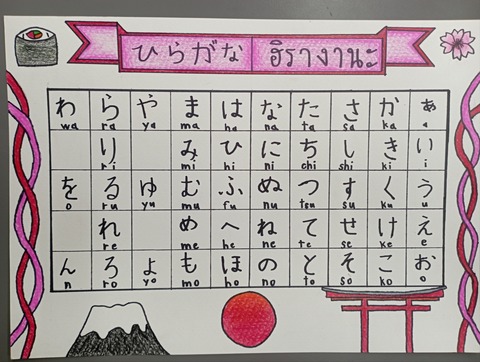 ひらがな ฮิรางานะ
わ ら や ま は な た さ か あ
wa ra ya ma ha na ta sa ka a
り み ひ に ち し き い
ri mi hi ni chi shi ki i
を る ゆ む ふ ぬ つ す く う
o ru yu mu fu nu tsu su ku u
れ め へ ね て せ け え
re me he ne te se ke e
ん ろ よ も ほ の と そ こ お
n ro yo mo ho no to so ko o